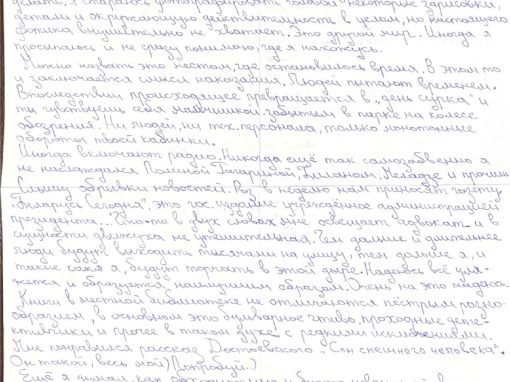 делать, я стараюсь фотографировать головой некоторые зарисовки,
детали и окружающую действительность в целом, но настоящего
фотика внушительно не хватает. Это другой мир. Иногда я
просыпаюсь и не сразу понимаю, где я нахожусь.
Можно назвать это местом, где остановилось время. В этом то
и заключается смысл наказания. Людей пытают временем.
Впоследствии происходящее превращается в „день сурка" и
ты чувствуешь себя забытым в парке на колесе
обозрения. Ни людей, ни тех.персонала, только монотонные
обороты твоей кабинки.
Иногда включают радио. Никогда ещё так самозабвенно я
не наслаждался Полиной Гагариной, Биланом, Меладзе и прочими
Слышу обрывки новостей. Раз в неделю нам приносят газету
"Беларусь Сегодня", это гос. издание учреждённое администрацией
президента. Что-то в двух словах мне освещает адвокат и в
сущности движуха не утешительная. Чем дальше и длительнее
люди будут выходить тысячами на улицу, тем дальше я, и
такие как я, будут торчать в этой дыре. Надеюсь всё ула-
жется и образуется наилучшим образом. Очень на это надеюсь.
Книги в местной библиотеке не отличаются пёстрым разно-
образием, в основном это бульварное чтиво, проходные дете-
ктивчики и прочее в таком духе с редкими исключениями.
Мне понравился рассказ Достоевского „Сон смешного человека".
Он такой, весь мой) Попробуй.)
Ещё я думал, как